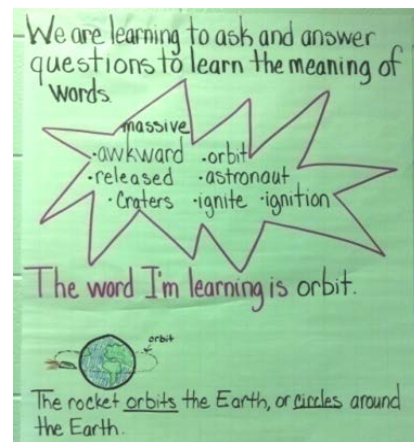 We are learning to ask and answer
questions to learn the meaning of
words.
massive
•awkward •orbit
•released •astronaut
•Craters •ignite •ignition
The word I'm learning is orbit.
orbit
The rocket orbits the Earth, or circles around
the Earth.